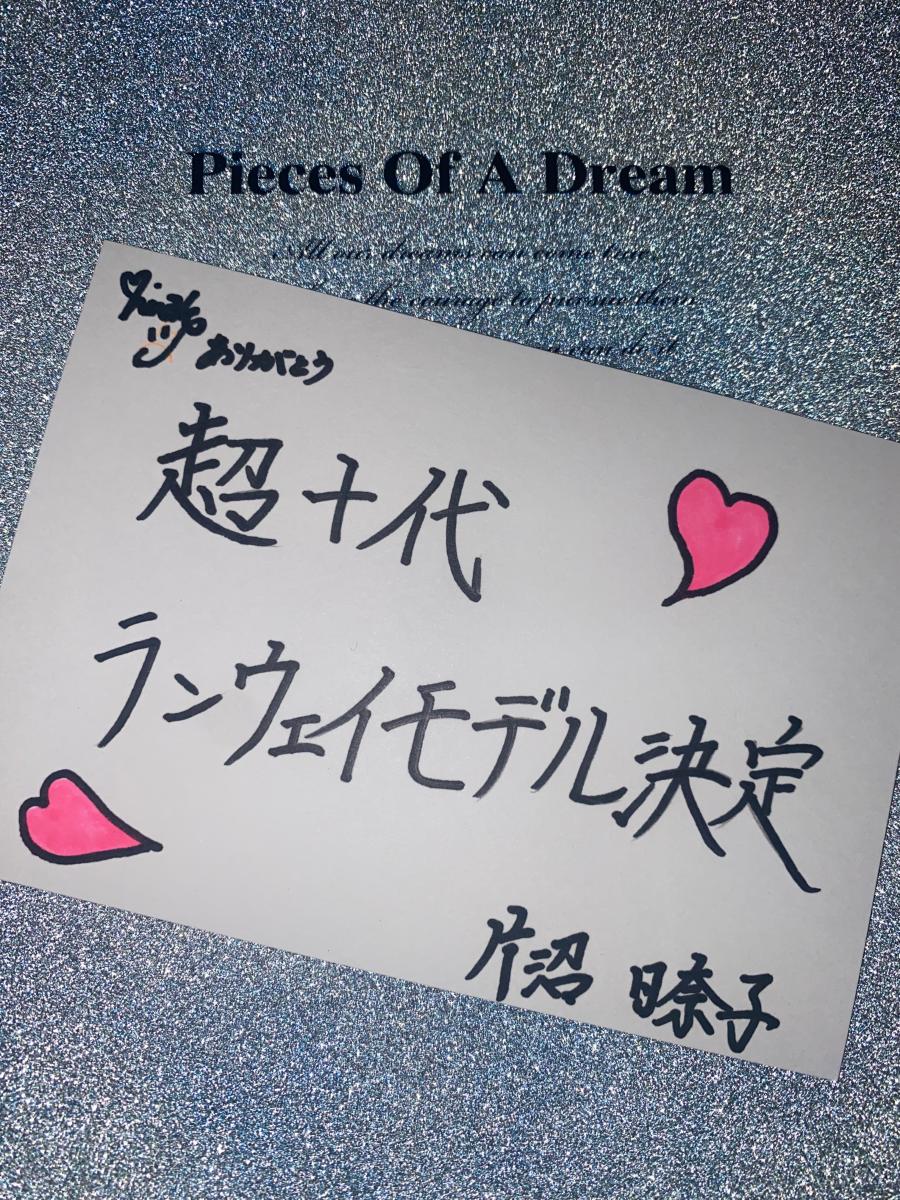 Pieces Of A Dream
All our dreams can come true,
the courage to pursue them
ありがとう
超十代
ランウェイモデル決定
片沼 日奈子